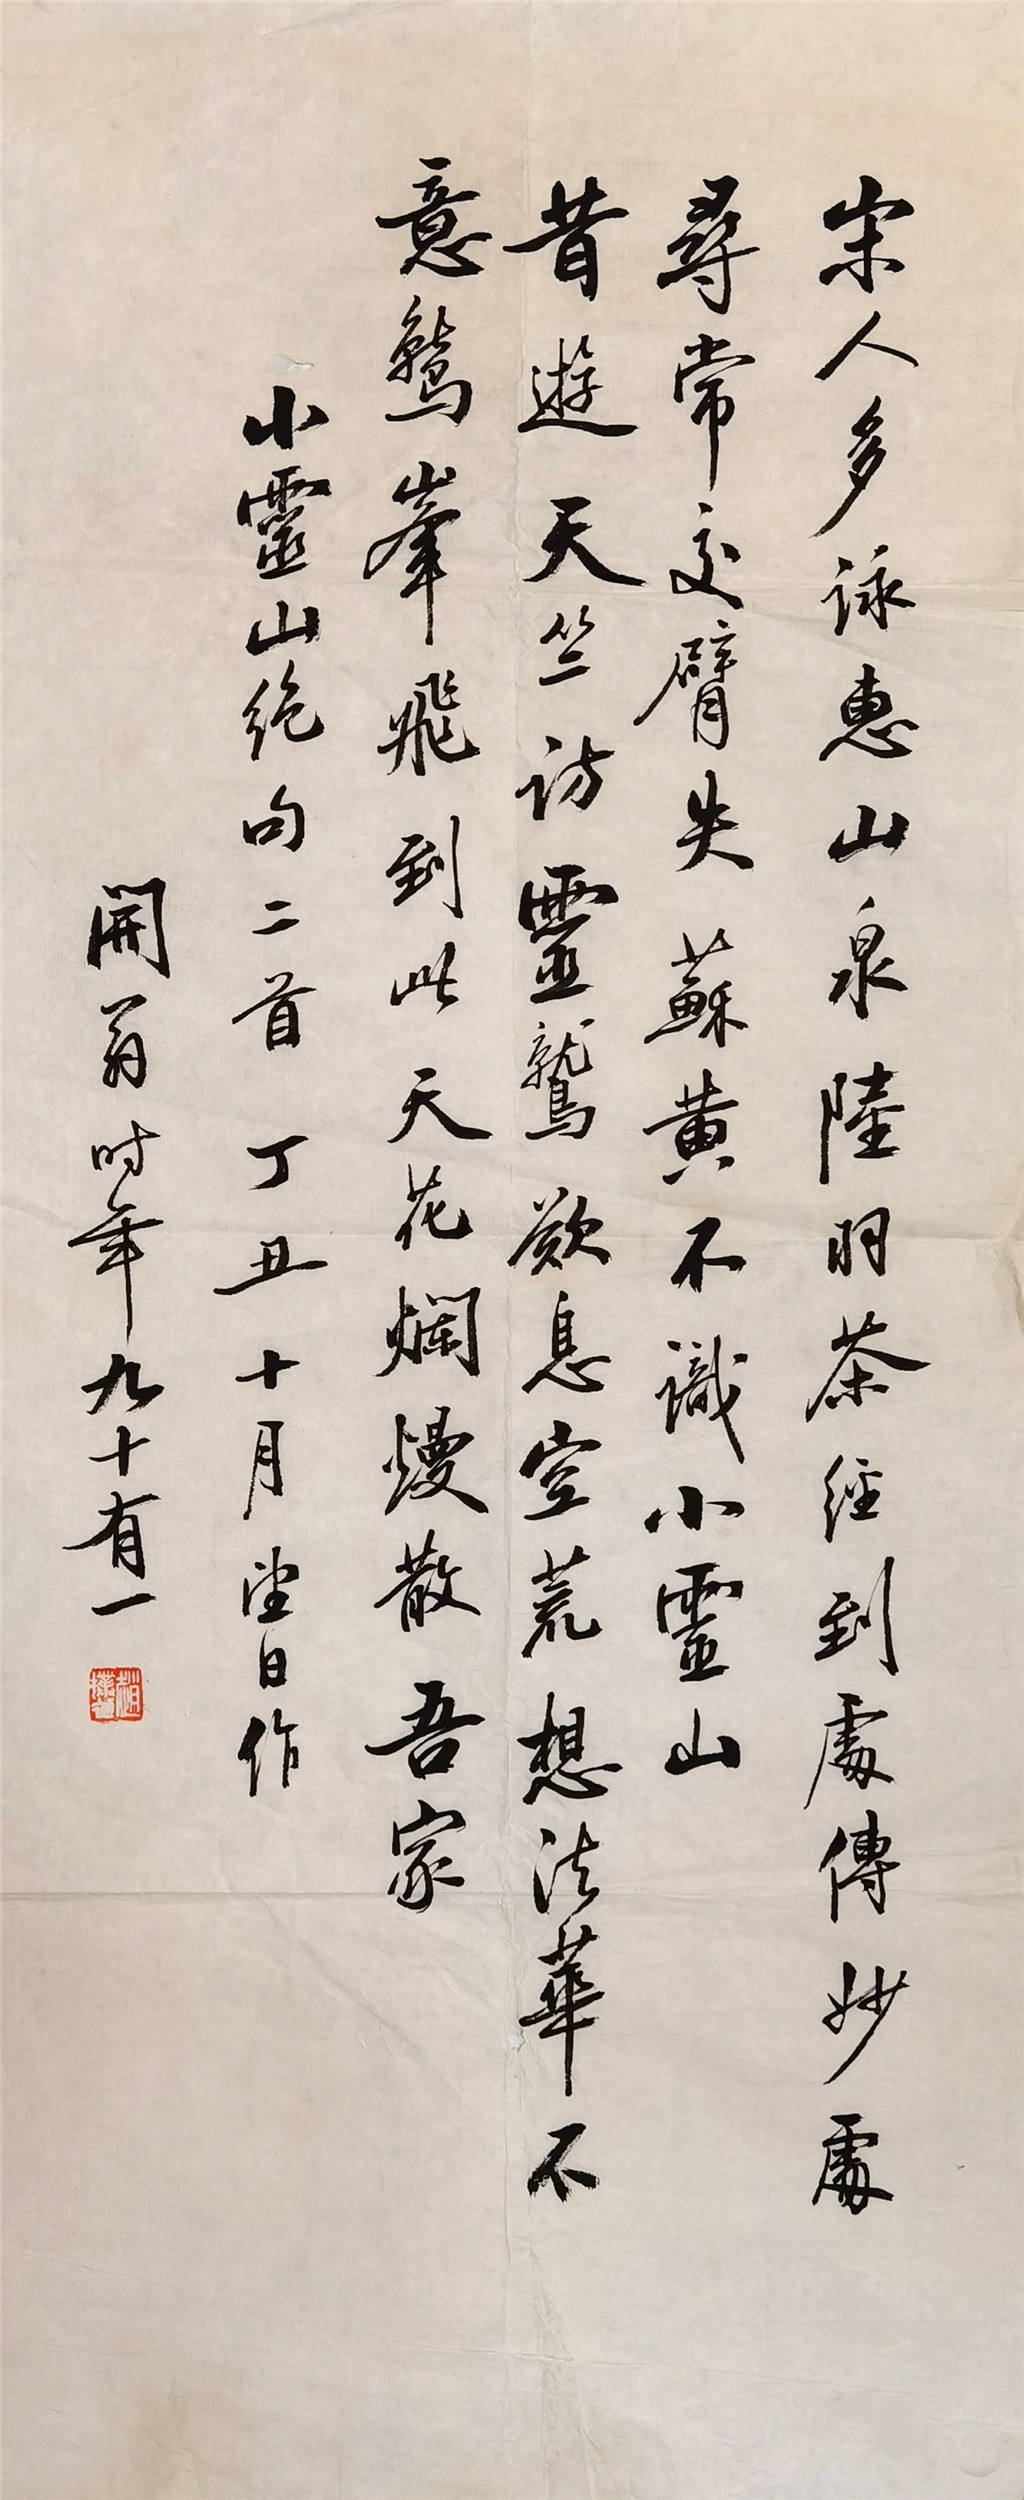 宋人多詠惠山泉陸羽茶經到處傳妙處
尋常交臂失蘇黃不識小靈山
昔遊天竺訪靈鷲欲息空荒想法華不
意鷲峯飛到此天花爛熳散吾家
小靈山絕句二首丁丑十月望日作
開翁時年九十有一